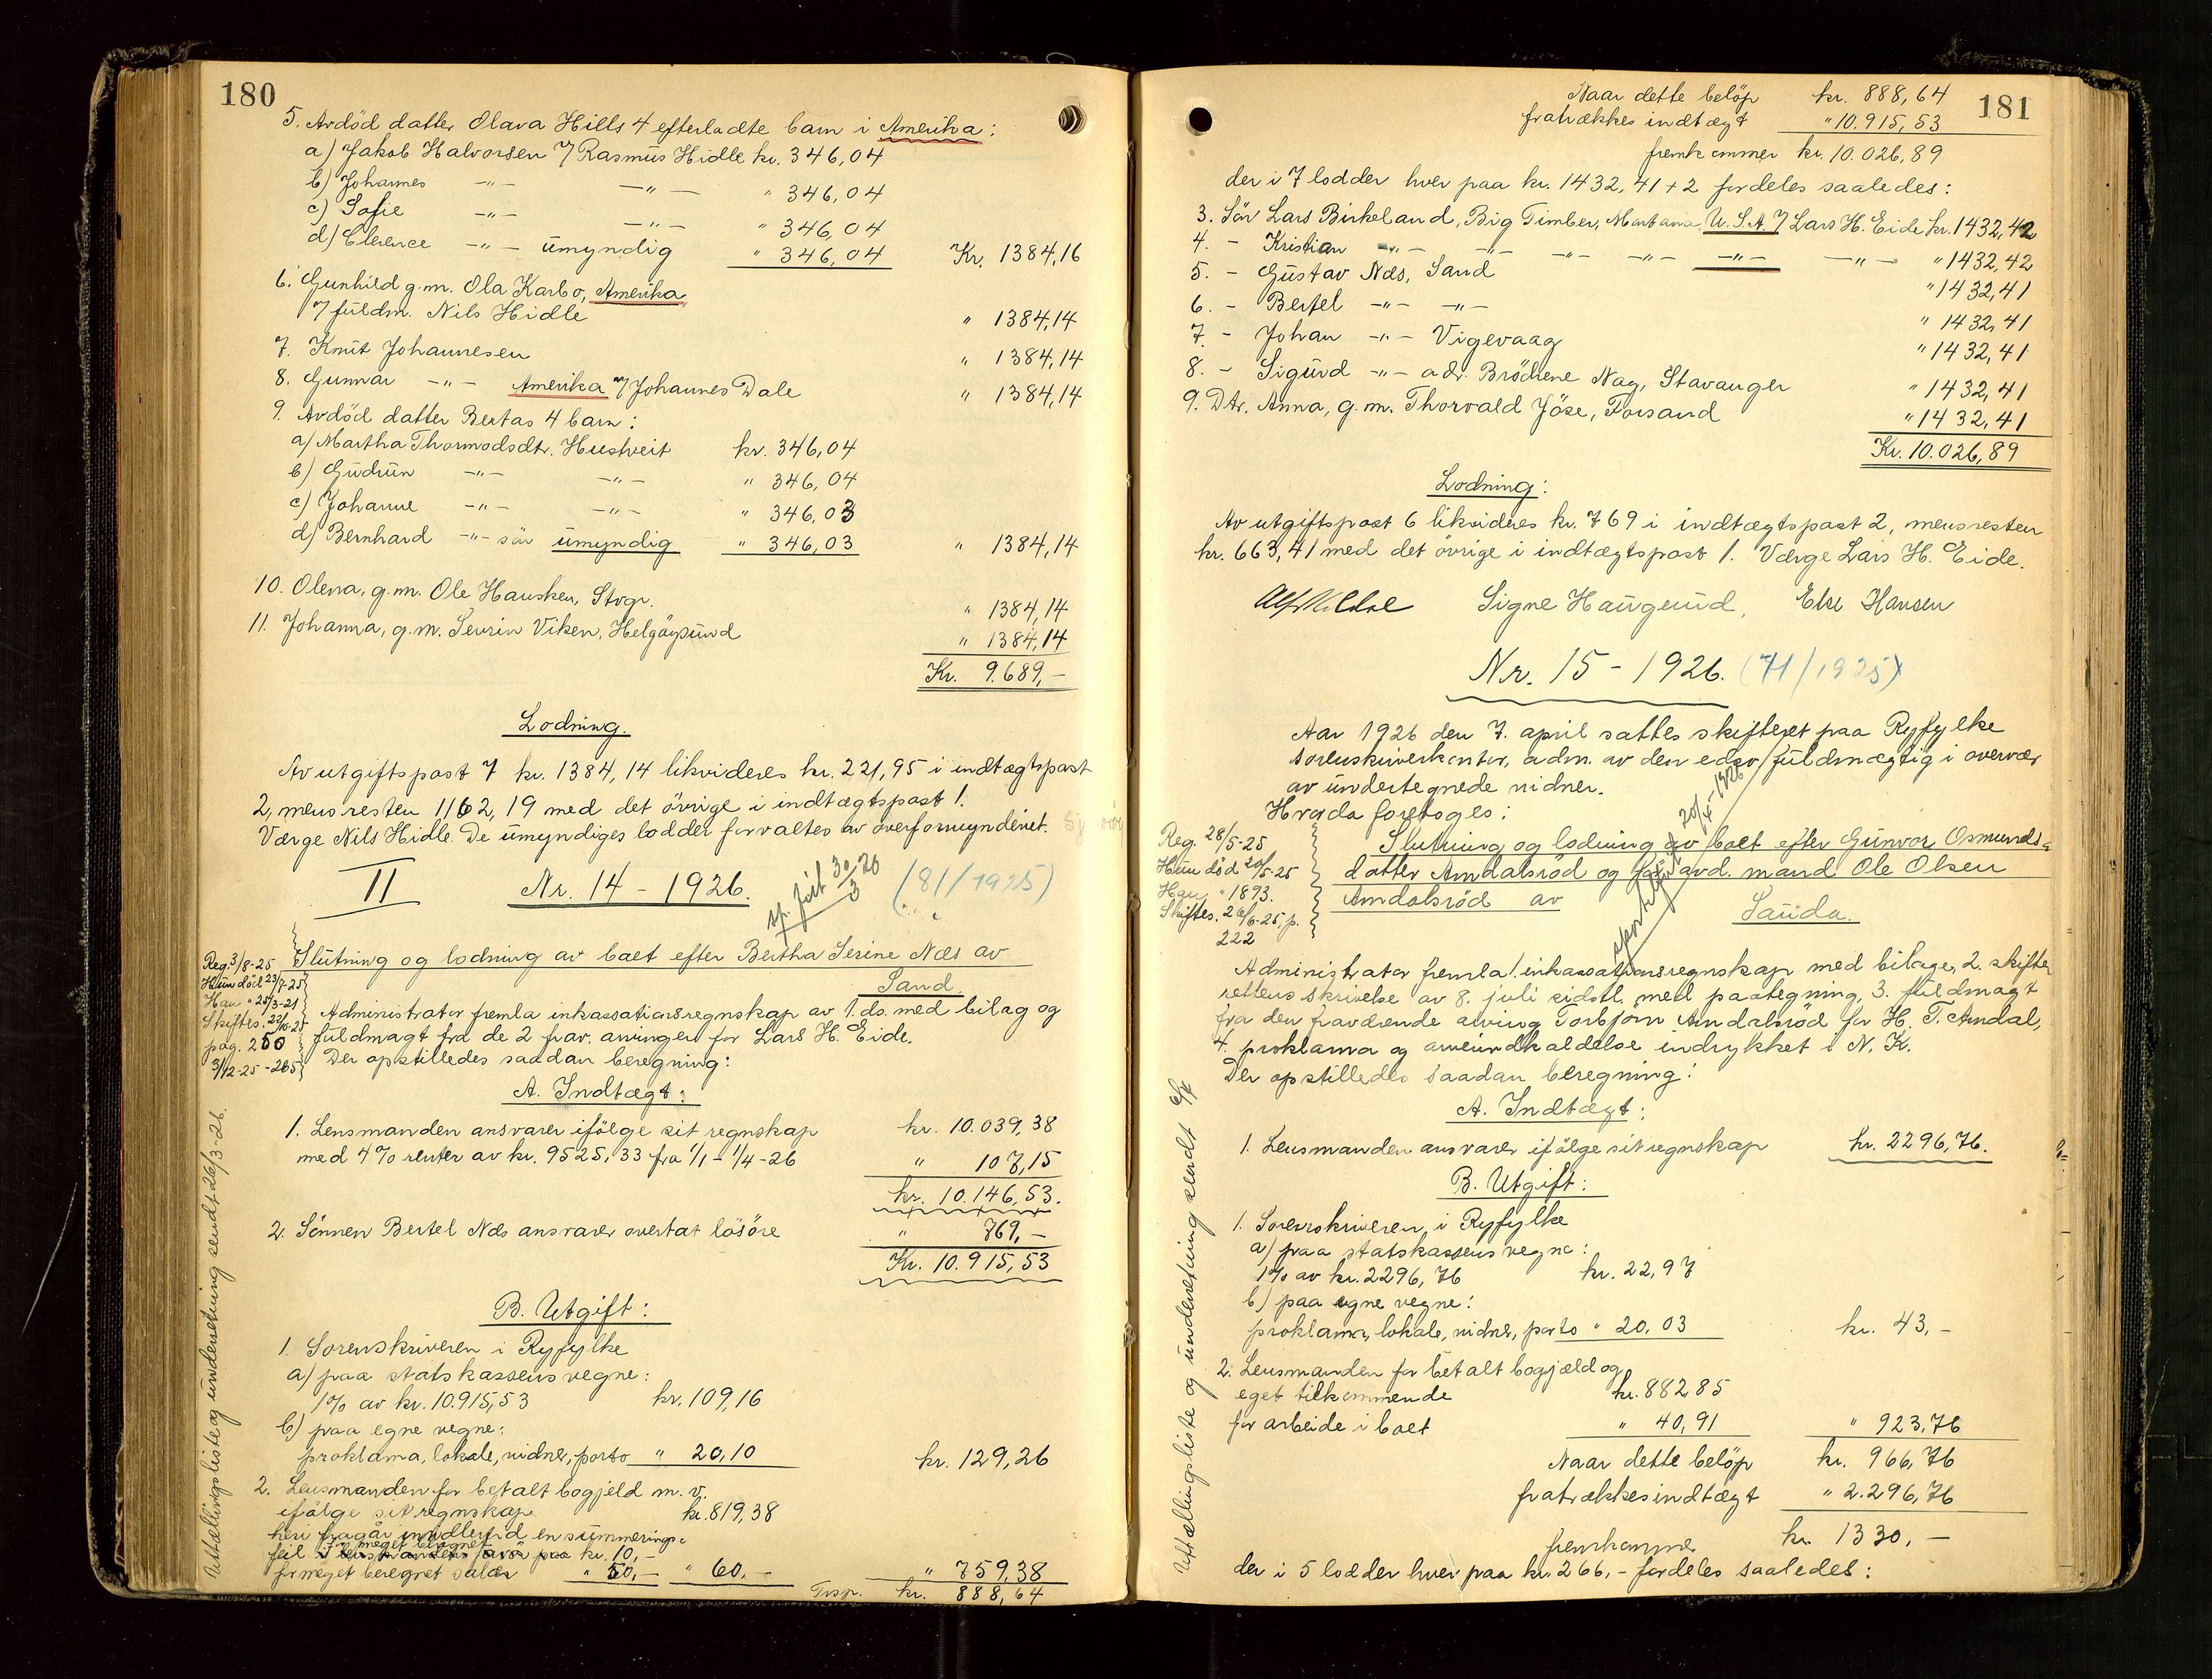 180
5. Avdöd datter Olava Hills 4 efterladte barn i Amerika:
a) Jakob Halvorsen 7 Rasmus Hidle kr. 346,04
b) Johannes -"- -"- " 346,04
c) Sofie -"- -"- " 346,04
d) Clerence -"- umyndig " 346,04 Kr. 1384,16
6. Gunhild g.m. Ola Karbo, Amerika
7 fuldm. Nils Hidle " 1384,14
7. Knut Johannesen " 1384,14
8. Gunnar -"- Amerika 7 Johannes Dale " 1384,14
9. Avdöd datter Bertas 4 barn:
a) Martha Thormodsdtr. Hustveit kr. 346,04
b) Gudrun -"- -"- " 346,04
c) Johanne -"- -"- " 346,03
d) Bernhard -"- sön umyndig " 346,03 " 1384,14
10. Olena, g.m. Ole Hausken, Stvgr. " 1384,14
11. Johanna, g.m. Sevrin Viken, Helgöysund " 1384,14
Kr. 9.689,-
Lodning.
Av utgiftspost 7 kr. 1384,14 likvideres kr. 221,95 i indtægtspost
2, mens resten 1162,19 med det övrige i indtægtspost 1.
Værge Nils Hidle. De umyndiges lodder forvaltes av overformynderiet.
II Nr. 14 - 1926. (81/1925)
30/3-26
Slutning og lodning av boet efter Bertha Serine Næs av
Sand.
Reg. 3/8-25
Hun död 23/7-25
Han " 25/3-21
Skiftes. 22/10-25
pag. 250
3/12-25 - 265
Administrator fremla inkassationsregnskap av 1. ds. med bilag og
fuldmagt fra de 2 frav. arvinger for Lars H. Eide.
Der opstilledes saadan beregning:
A. Indtægt:
1. Lensmanden ansvarer ifölge sit regnskap kr. 10.039,38
med 4% renter av kr. 9525,33 fra 1/1 - 1/4-26 " 107,15
kr. 10.146,53.
2. Sönnen Bertel Næs ansvarer overtat lösöre " 769,-
Kr. 10.915,53
B. Utgift:
1. Sorenskriveren i Ryfylke
a) paa statskassens vegne:
1% av kr. 10.915,53 kr. 109,16
b) paa egne vegne:
proklama, lokale, vidner, porto " 20,10 kr. 129,26
2. Lensmanden for betalt bogjeld m.v.
ifölge sit regnskap kr. 819,38
heri fragår imidlertid en summerings-
feil for meget beregnet kr. 10,-
for meget beregnet salær " 50,- " 60,- " 759,38
Trsp. kr. 888,64
Uttællingsliste og underretning sendt 26/3-26.
181
Naar dette belöp kr. 888,64
fratrækkes indtægt " 10.915,53
fremkommer kr. 10.026,89
der i 7 lodder hver paa kr. 1432,41 + 2 fordeles saaledes:
3. Sön Lars Birkeland, Big Timber, Montana, U.S.A. 7 Lars H. Eide kr. 1432,42
4. - Kristian -"- -"- -"- -"- -"- -"- " 1432,42
5. - Gustav Næs, Sand " 1432,41
6. - Bertel -"- -"- " 1432,41
7. - Johan -"- Vigevaag " 1432,41
8. - Sigurd -"- adr. Brödrene Nag, Stavanger " 1432,41
9. Dtr. Anna, g.m. Thorvald Jöse, Forsand " 1432,41
Kr. 10.026,89
Lodning:
Av utgiftspost 6 likvideres kr. 769 i indtægtspost 2, mens resten
kr. 663,41 med det övrige i indtægtspost 1. Værge Lars H. Eide.
Signe Haugerud, Else Hansen
Nr. 15 - 1926. (71/1925)
Aar 1926 den 7. april sattes skifteret paa Ryfylke
sorenskriverkontor, adm. av den edsv. fuldmægtig i overvær
av undertegnede vidner.
Hvorda foretoges:
20/4-1926
Slutning og lodning av boet efter Gunvor Osmunds-
datter Amdalsröd og för avd. mand Ole Olsen
Amdalsröd av Sauda.
Reg. 28/5-25
Hun död 20/5-25
Han " 1893.
Skiftes. 26/6-25, p.
222
Administrator fremla 1. inkassationsregnskap med bilage, 2. skifte
rettens skrivelse av 8. juli sidstl. med paategning, 3. fuldmagt
fra den fraværende arving Torbjörn Amdalsröd for H. T. Amdal,
4. proklama og arveindkaldelse indrykket i N. K.
Der opstilledes saadan beregning:
A. Indtægt:
1. Lensmanden ansvarer ifölge sit regnskap kr. 2296,76.
B. Utgift:
1. Sorenskriveren i Ryfylke
a) paa statskassens vegne:
1% av kr. 2296,76 kr. 22,97
b) paa egne vegne:
proklama, lokale, vidner, porto " 20,03 kr. 43,-
2. Lensmanden for betalt bogjæld og
eget tilkommende kr. 882,85
for arbeide i boet " 40,91 " 923,76
Naar dette belöp kr. 966,76
fratrækkes indtægt " 2.296,76
fremkommer kr. 1330,-
der i 5 lodder hver paa kr. 266,- fordeles saaledes:
Uttællingsliste og underretning sendt